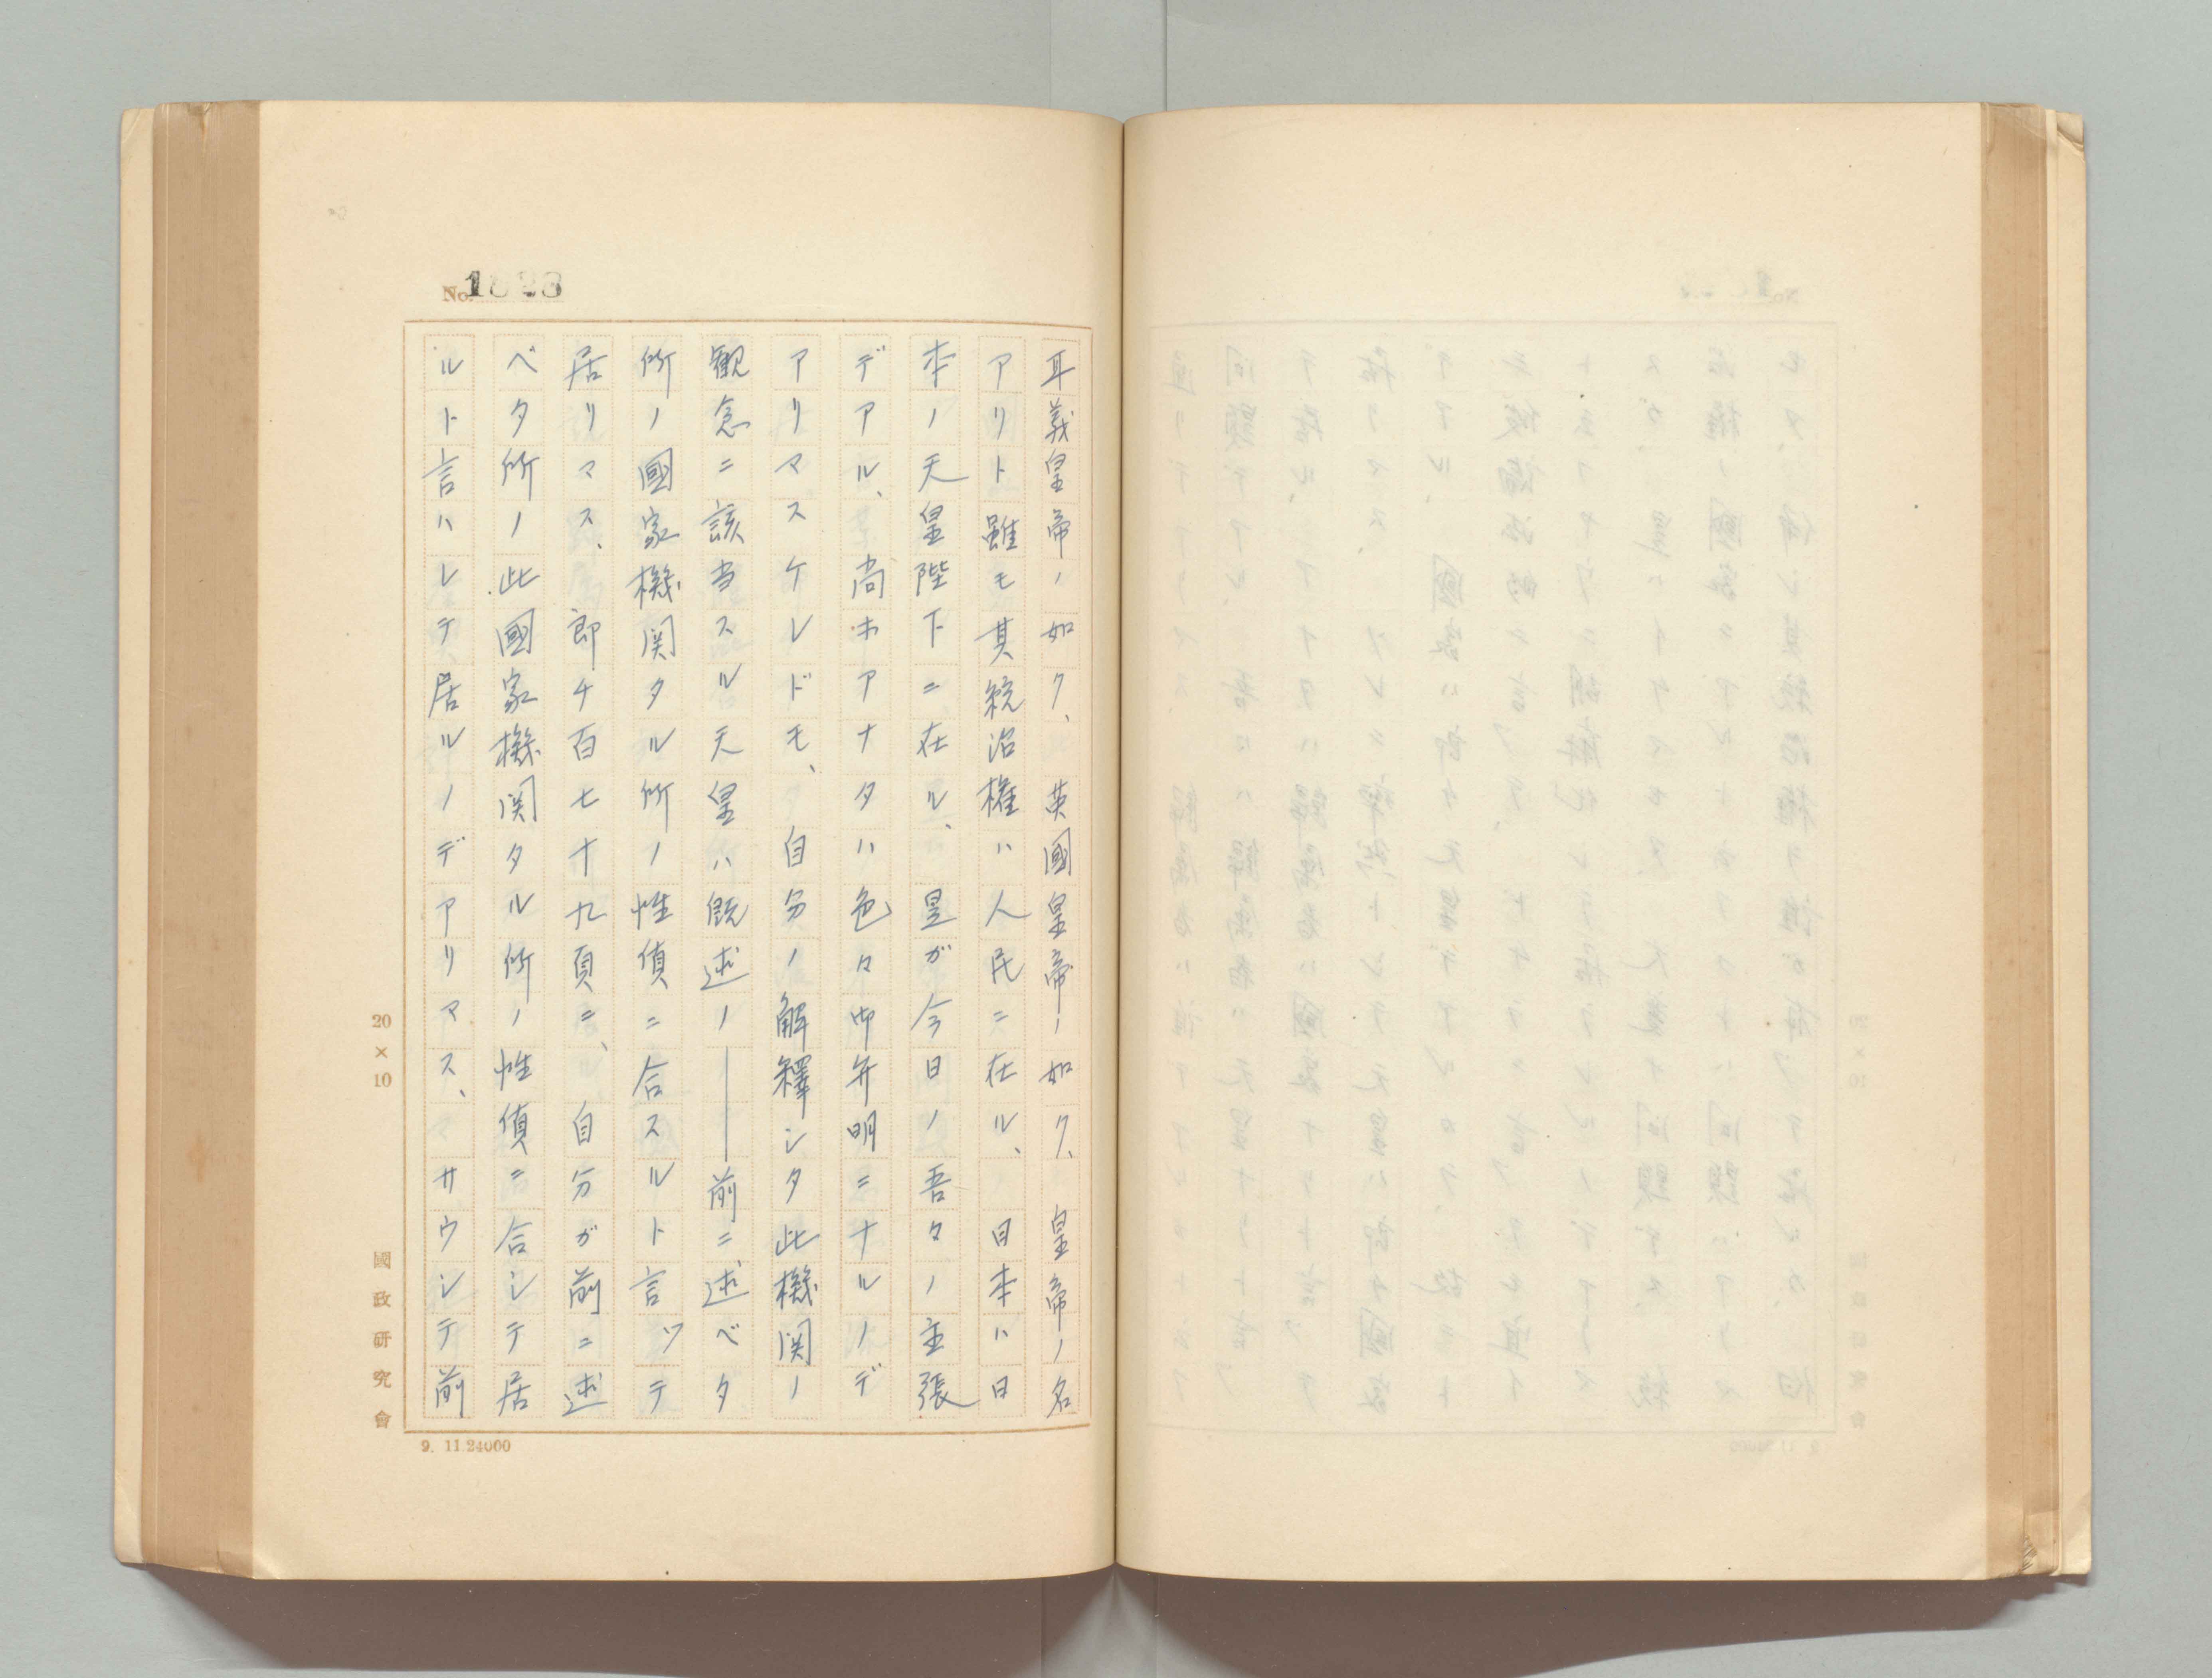 No. 1823
耳義皇帝ノ如ク、英國皇帝ノ如ク、皇帝ノ名
アリト雖モ其統治權ハ人民ニ在ル、日本ハ日
本ノ天皇陛下ニ在ル、是ガ今日ノ吾々ノ主張
デアル、尚ホアナタハ色々御弁明ニナルノデ
アリマスケレドモ、自分ノ解釋シタ此機関ノ
観念ニ該当スル天皇ハ既述ノ――前ニ述ベタ
所ノ國家機関タル所ノ性質ニ合スルト言ツテ
居リマス、即チ百七十九頁ニ、自分ガ前ニ述
ベタ所ノ此國家機関タル所ノ性質ニ合シテ居
ルト言ハレテ居ルノデアリマス、サウシテ前
20×10
國政研究會
9. 11.24000